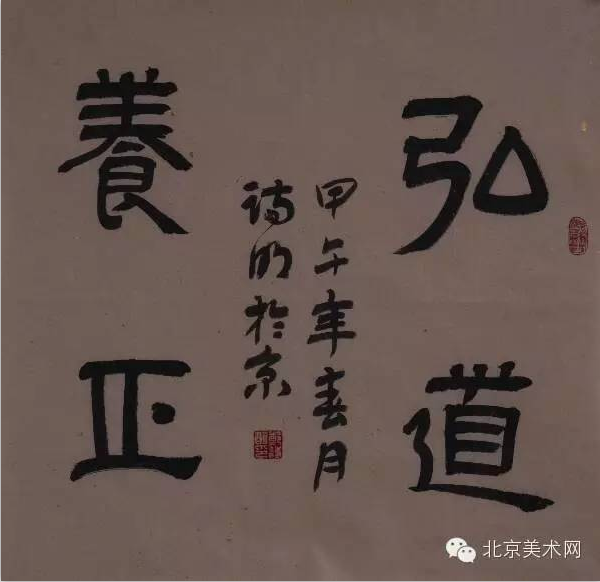 弘道
養正
甲午年春月
诗明於京
北京美术网